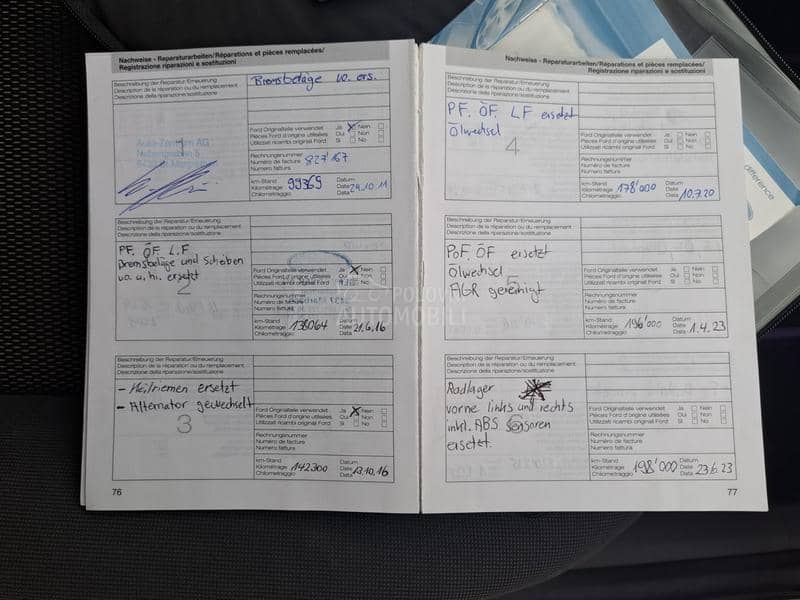 Nachweise - Reparaturarbeiten/Réparations et pièces remplacées/
Registrazione riparazioni e sostituzioni
Beschreibung der Reparatur/Erneuerung
Description de la réparation ou du remplacement
Descrizione della riparazione/sostituzione
Bremsbeläge vo. ers.
Auto-Zentrum AG
1
Ford Originalteile verwendet Ja Nein
Pièces Ford d'origine utilisées Oui Non
Utilizzati ricambi originali Ford Sì No
Rechnungsnummer
Numéro de facture 827'167
Numero fattura
km-Stand Datum
Kilométrage 99369 Date 24.10.11
Chilometraggio Data
Beschreibung der Reparatur/Erneuerung
Description de la réparation ou du remplacement
Descrizione della riparazione/sostituzione
PF. ÖF. L.F
Bremsbeläge und Scheiben
vo. u. hi. ersetzt
2
Ford Originalteile verwendet Ja Nein
Pièces Ford d'origine utilisées Oui Non
Utilizzati ricambi originali Ford Sì No
Rechnungsnummer
Numéro de facture
Numero fattura
km-Stand Datum
Kilométrage 138064 Date 21.6.16
Chilometraggio Data
Beschreibung der Reparatur/Erneuerung
Description de la réparation ou du remplacement
Descrizione della riparazione/sostituzione
- Keilriemen ersetzt
- Alternator gewechselt
3
Ford Originalteile verwendet Ja Nein
Pièces Ford d'origine utilisées Oui Non
Utilizzati ricambi originali Ford Sì No
Rechnungsnummer
Numéro de facture
Numero fattura
km-Stand Datum
Kilométrage 142300 Date 13.10.16
Chilometraggio Data
76
Nachweise - Reparaturarbeiten/Réparations et pièces remplacées/
Registrazione riparazioni e sostituzioni
Beschreibung der Reparatur/Erneuerung
Description de la réparation ou du remplacement
Descrizione della riparazione/sostituzione
PF. ÖF. LF ersetzt
Ölwechsel
4
Ford Originalteile verwendet Ja Nein
Pièces Ford d'origine utilisées Oui Non
Utilizzati ricambi originali Ford Sì No
Rechnungsnummer
Numéro de facture
Numero fattura
km-Stand Datum
Kilométrage 178'000 Date 10.7.20
Chilometraggio Data
Beschreibung der Reparatur/Erneuerung
Description de la réparation ou du remplacement
Descrizione della riparazione/sostituzione
PoF. ÖF ersetzt
Ölwechsel
AGR gereinigt
5
Ford Originalteile verwendet Ja Nein
Pièces Ford d'origine utilisées Oui Non
Utilizzati ricambi originali Ford Sì No
Rechnungsnummer
Numéro de facture
Numero fattura
km-Stand Datum
Kilométrage 196'000 Date 1.4.23
Chilometraggio Data
Beschreibung der Reparatur/Erneuerung
Description de la réparation ou du remplacement
Descrizione della riparazione/sostituzione
Radlager
vorne links und rechts
inkl. ABS Sensoren
ersetzt.
Ford Originalteile verwendet Ja Nein
Pièces Ford d'origine utilisées Oui Non
Utilizzati ricambi originali Ford Sì No
Rechnungsnummer
Numéro de facture
Numero fattura
km-Stand Datum
Kilométrage 198'000 Date 23.6.23
Chilometraggio Data
77
difference
POLOVNI
AUTOMOBILI